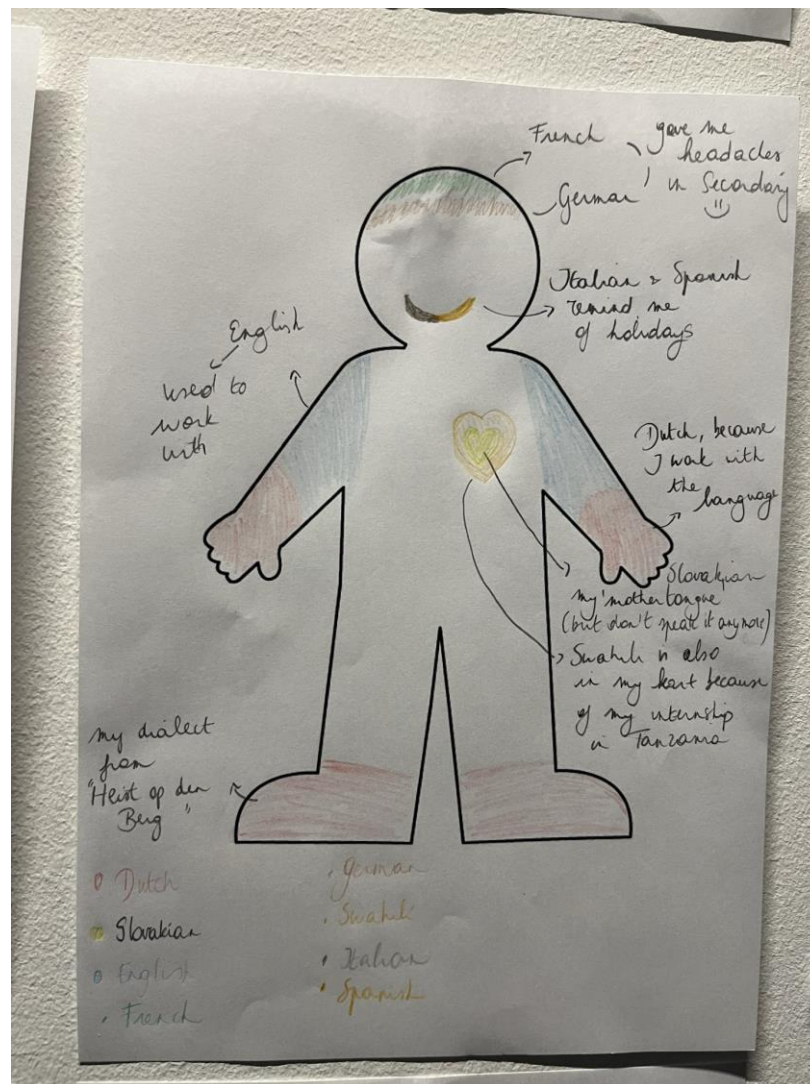 French
German
gave me
headacles
in Secondary
Italian & Spanish
remind me
of holidays
English
used to
work
with
Dutch, because
I work with
the
language
Slovakian
my mothertongue
(but don't speak it anymore)
Swahili is also
in my heart because
of my internship
in Tanzania
my dialect
from
"Heist op den
Berg"
Dutch
Slovakian
English
French
German
Swahili
Italian
Spanish